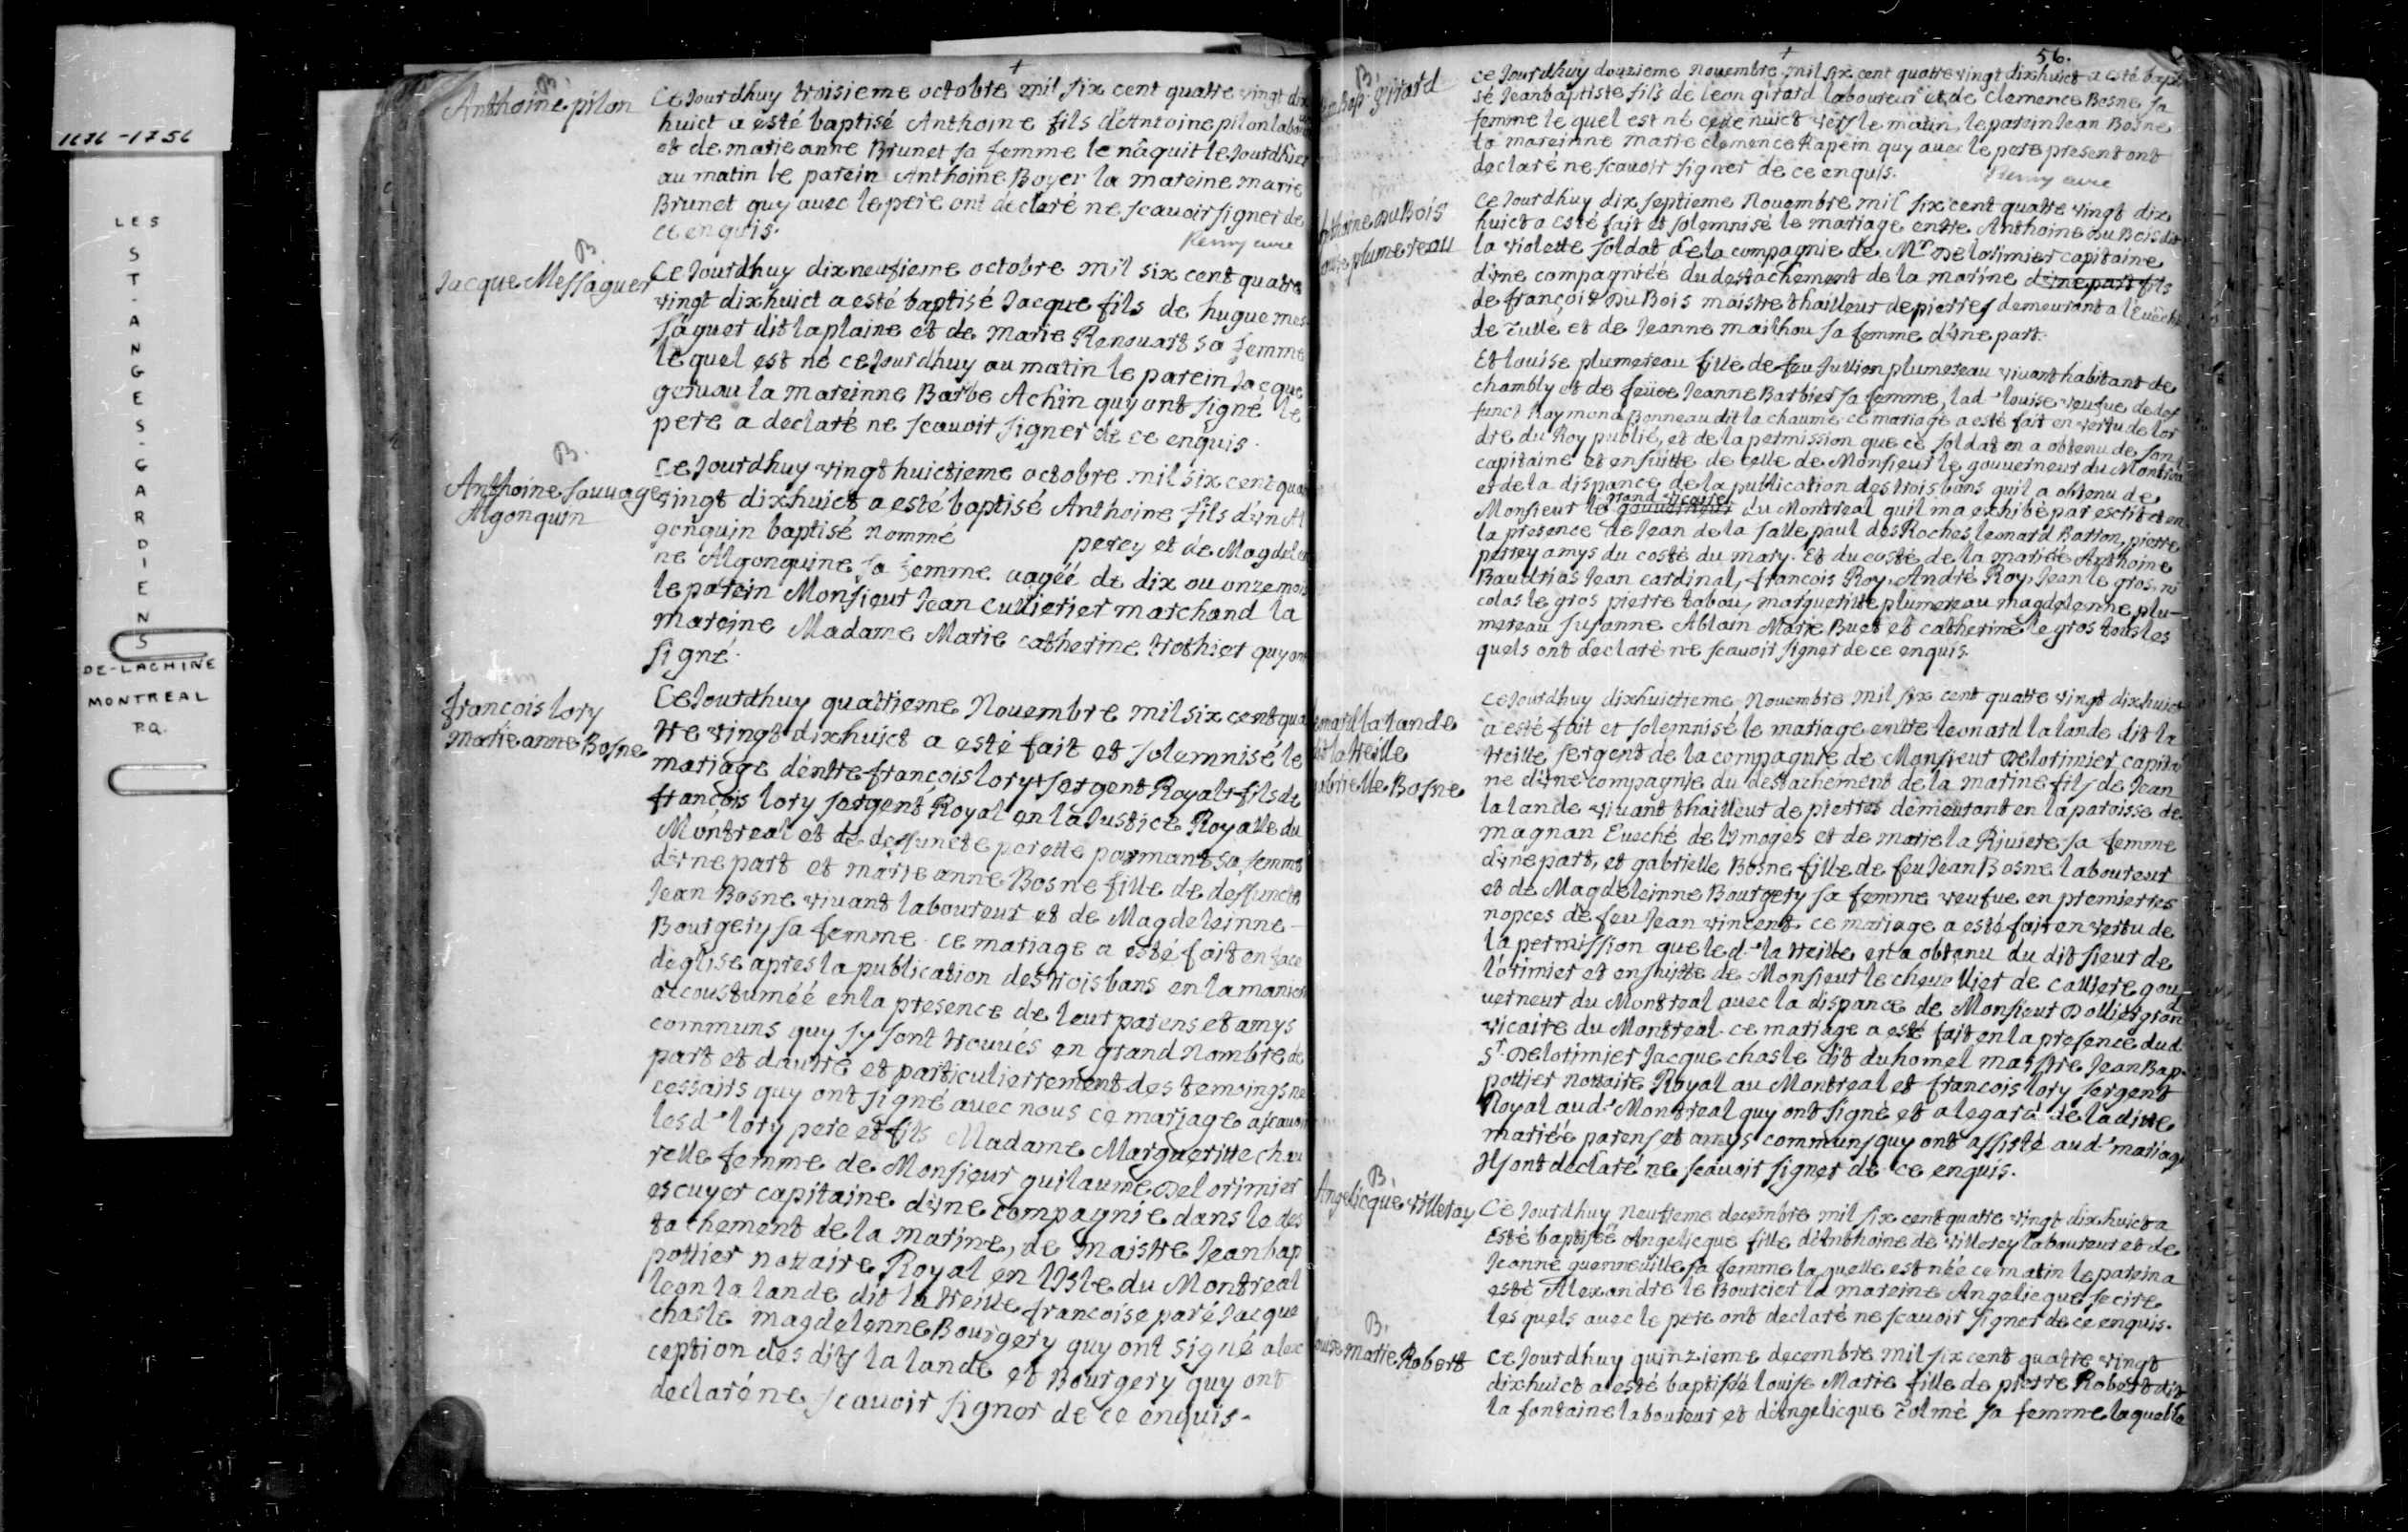 1676-1756
LES
ST-ANGES-GARDIENS
DE-LACHINE
MONTREAL
P.Q.
+
B.
Anthoine pilon
Ce Jourdhuy troisieme octobre mil six cent quatre vingt dix
huict a esté baptisé Anthoine fils d'Antoine pilon labou
et de marie anne Brunet sa femme le nâquit le Jourdhier
au matin le parein Anthoine Boyer la mareine marie
Brunet quy avec le pere ont déclaré ne scavoir signer de
ce enquis.
Remy curé
B.
Jacque Messaguer
Ce Jourdhuy dixneufieme octobre mil six cent quatre
vingt dixhuict a esté baptisé Jacque fils de hugue mes
saguer dit laplaine et de Marie Renouart sa femme
le quel est né ce Jourdhuy au matin le parein Jacque
geruau la mareinne Barbe Achin quy ont signé le
pere a declaré ne scauoir signer de ce enquis.
B.
Anthoine sauuage
Algonquin
Ce Jourdhuy vingt huictieme octobre mil six cent qua
vingt dixhuict a esté baptisé Anthoine fils d'vn Al
gonquin baptisé nommé perey et de Magdelen
ne Algonquine sa femme aagéé de dix ou onze mois
le parein Monsieur Jean Cuillerier marchand la
mareine Madame Marie catherine trothier quy ont
signé.
m
francois lory
marie anne Bosne
Ce Jourdhuy quatrieme Nouembre mil six cent qua
tre vingt dixhuict a esté fait et solemnisé le
mariage d'entre françois lory + sergent Royal + fils de
francois lory sergent Royal en la Justice Royalle du
Montreal et de deffuncte perette parmant sa femme
d'vne part et marie anne Bosne fille de deffunct
Jean Bosne viuant laboureur et de Magdeleinne
Bourgery sa femme ce mariage a esté fait en face
d'eglise apres la publication des trois bans en la manier
accoustuméé en la presence de leur parens et amys
communs quy sy sont trouués en grand Nombre de
part et d'autre et particulierrement des temoings ne
cessairs quy ont signé avec nous ce mariage ascauoir
lesd. lory pere et fils Madame Margueritte chau
relle femme de Monsieur guilaume Delorimier
escuyer capitaine d'vne compagnie dans le des
tachement de la marine, de maistre Jean bap
pottier nottaire Royal en l'Isle du Montreal
leon la lande dit la treille francoise paré Jacque
chasle magdelenne Bourgery quy ont signé alex
ception des dits la lande et Bourgery quy ont
declaré ne scauoir signer de ce enquis.
+
56.
B.
Bap. girard
ce Jourdhuy douzieme nouembre mil six cent quatre vingt dixhuict a esté bapti
sé Jean baptiste fils de leon girard laboureur et de clemence Bosne sa
femme le quel est né cette nuict vers le matin, le parein Jean Bosne
la mareinne marie clemence Rapein quy auec le pere present ont
declaré ne scauoir signer de ce enquis.
Remy curé
Anthoine Du Bois
louise plumereau
Ce Jourdhuy dix septieme Nouembre mil six cent quatre vingt dix
huict a esté fait et solemnisé le mariage entre Anthoine du Bois dit
la violette soldat de la compagnie de Mr. Delorimier capitaine
d'vne compagniéé du destachement de la marine d'vne part fils
de françois Du Bois maistre thailleur de pierres demeurant a l'Euêché
de tulle et de Jeanne maithou sa femme d'vne part.
Et louise plumereau fille de feu Jullien plumereau viuant habitant de
chambly et de feüee Jeanne Barbier sa femme, lad. louise veufue de def
funct Raymond Bonneau dit la chaume ce mariage a esté fait en vertu de lor
dre du Roy publié, et de la permission que ce soldat en a obtenu de son
capitaine et ensuitte de celle de Monsieur le gouuerneur du Montreal
et de la dispance de la publication des trois bans quil a obtenu de
grand vicaire
Monsieur le gouuerneur du Montreal quil ma exhibé par escrit et en
la presence de Jean de la salle paul des Roches leonard Barron, pierre
perrey amys du costé du mary. Et du costé de la mariéé Anthoine
Baudrias Jean cardinal, francois Roy, André Roy, Jean le gros, ni
colas le gros pierre tabau, margueritte plumereau magdelenne plu-
mereau Susanne Ablain Marie Buet et catherine le gros tous les
quels ont declaré ne scauoir signer de ce enquis.
leonard la lande
dit latreille
gabrielle Bosne
Ce Jourdhuy dixhuictieme Nouembre mil six cent quatre vingt dixhuict
a esté fait et solemnisé le mariage entre leonard la lande dit la
treille sergent de la compagnie de Monsieur Delorimier capitai
ne d'vne compagnie du destachement de la marine fils de Jean
la lande viuant thailleur de pierres demeurant en la paroisse de
magnan Eueché de limoges et de marie la Riuiere sa femme
d'vne part, et gabrielle Bosne fille de feu Jean Bosne laboureur
et de Magdeleinne Bourgery sa femme veufue en premierres
nopces de feu Jean vincent ce mariage a esté fait en vertu de
la permission que led. la treille en a obtenu du dit sieur de
lorimier et ensuitte de Monsieur le cheuallier de calliere gou
uerneur du Montreal auec la dispance de Monsieur Dollier grand
vicaire du Montreal ce mariage a esté fait en la presence dud.
Sr. Delorimier Jacque chasle dit duhomel maistre Jean Bap.
pottier nottaire Royal au Montreal et francois lory sergent
Royal aud. Montreal quy ont signé et a legard de la ditte
mariéé parens et amys communs quy ont assisté aud. mariage
Ils ont declaré ne scauoir signer de ce enquis.
B.
Angelicque villeray
Ce Jourdhuy neufieme decembre mil six cent quatre vingt dixhuict a
esté baptiséé Angelicque fille d'Anthoine de villeray laboureur et de
Jeanne quenneuille sa femme la quelle est néé ce matin le parein a
esté Alexandre le Boursier la mareine Angelicque secire
les quels auec le pere ont declaré ne scauoir signer de ce enquis.
B.
louise marie Robert
Ce Jourdhuy quinzieme decembre mil six cent quatre vingt
dixhuict a esté baptiséé louise Marie fille de pierre Robert dit
la fontaine laboureur et d'Angelicque tolmé sa femme laquelle